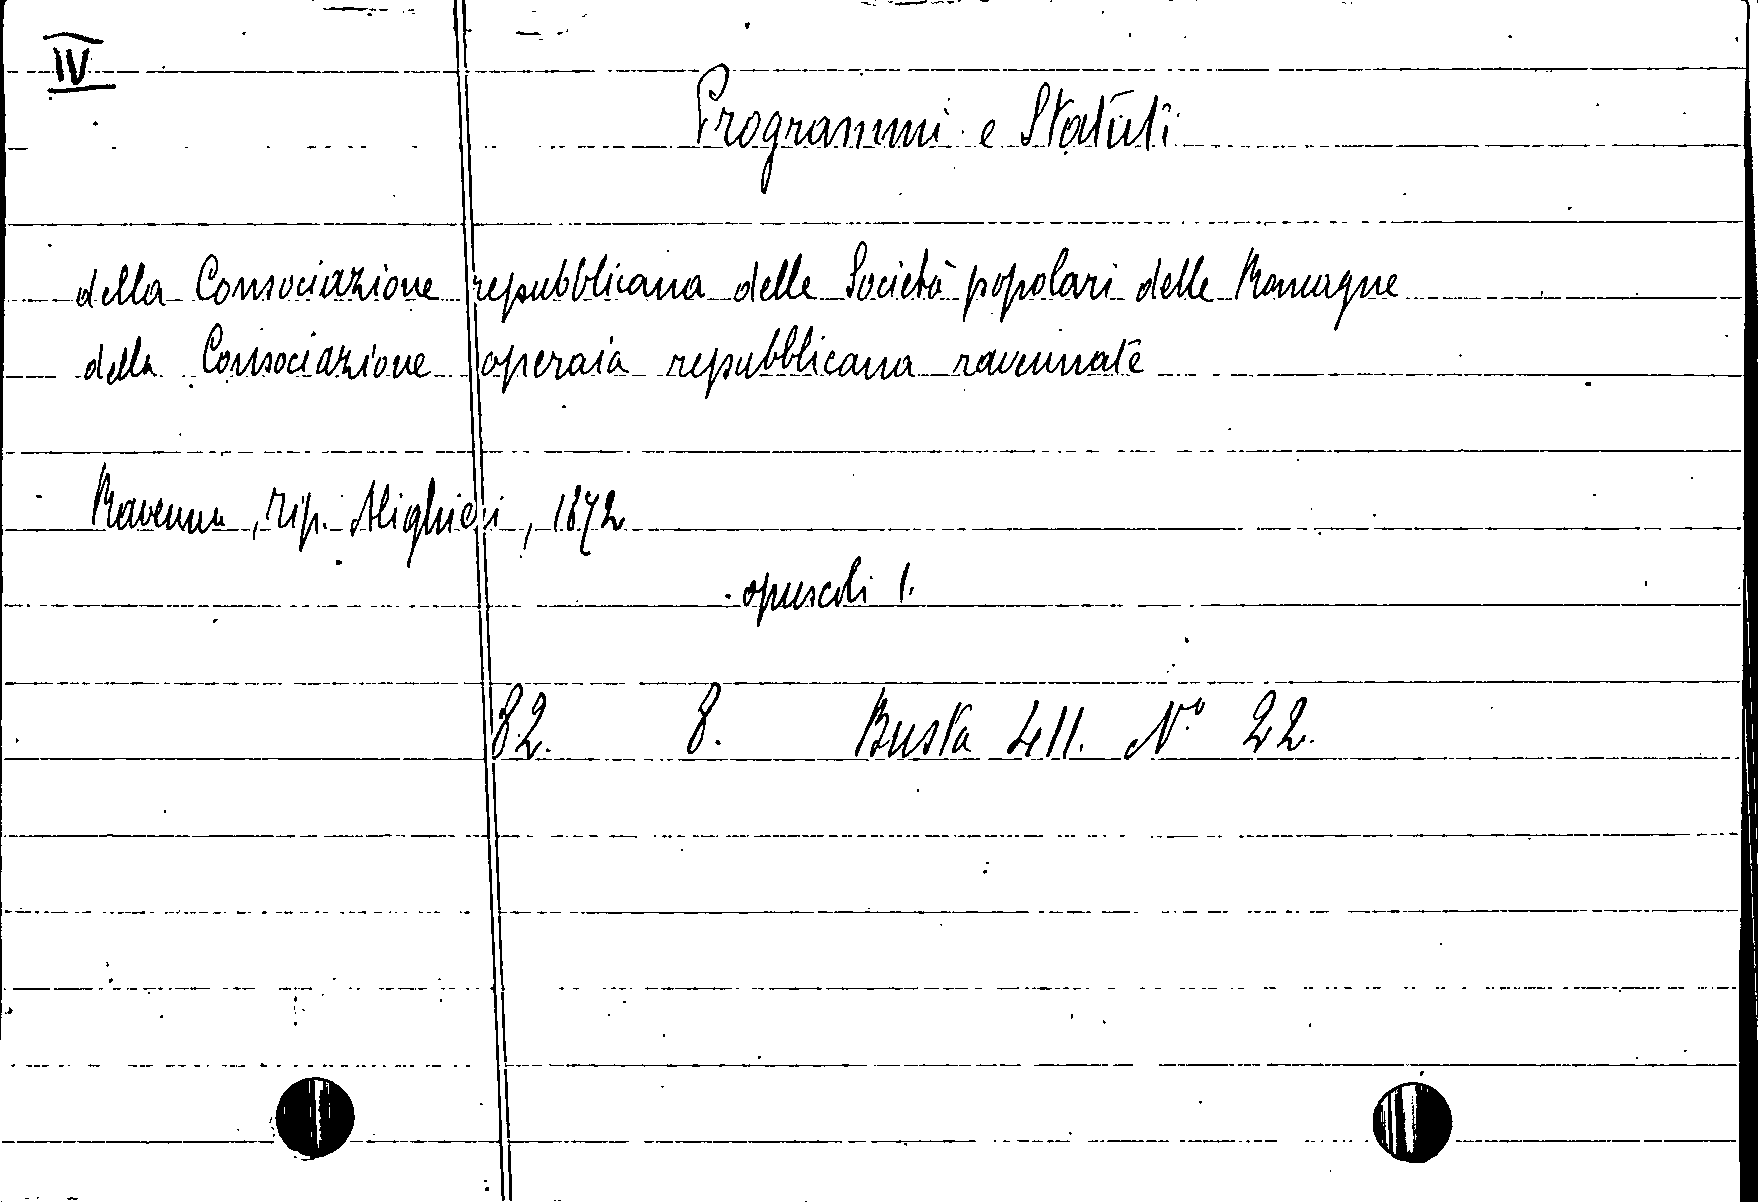 IV
Programmi e Statuti
della Consociazione repubblicana delle Società popolari delle Romagne
della Consociazione operaia repubblicana ravennate
Ravenna, Tip. Alighieri, 1872
opuscoli 1.
82. 8. Busta 411. N.º 22.